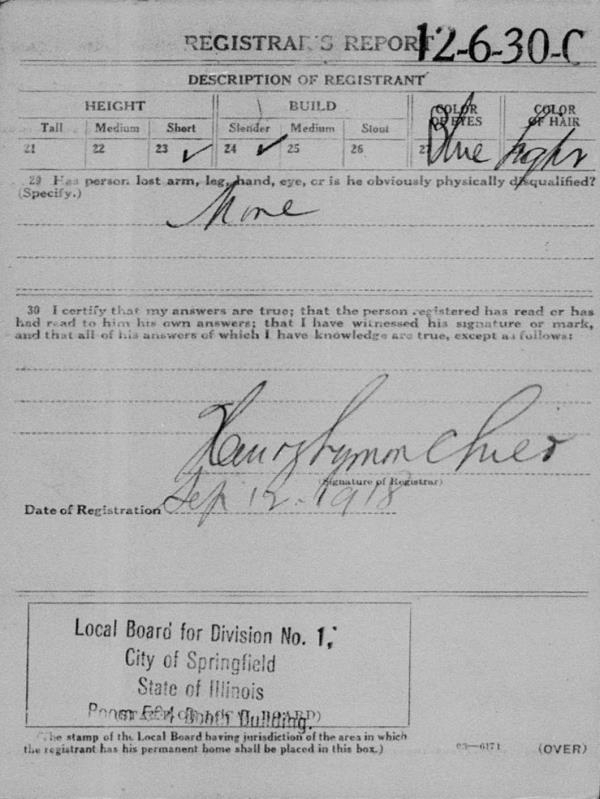 REGISTRAR'S REPORT 12-6-30-C
DESCRIPTION OF REGISTRANT
HEIGHT BUILD COLOR OF EYES COLOR OF HAIR
Tall Medium Short Slender Medium Stout
21 22 23 ✓ 24 ✓ 25 26 27 Blue Light
29 Has person lost arm, leg, hand, eye, or is he obviously physically disqualified?
(Specify.)
None
30 I certify that my answers are true; that the person registered has read or has
had read to him his own answers; that I have witnessed his signature or mark,
and that all of his answers of which I have knowledge are true, except as follows:
Henry Lyman
(Signature of Registrar)
Date of Registration Sep 12. 1918
Local Board for Division No. 1,
City of Springfield
State of Illinois
Room Building.
(The stamp of the Local Board having jurisdiction of the area in which
the registrant has his permanent home shall be placed in this box.)
03—6171 (OVER)